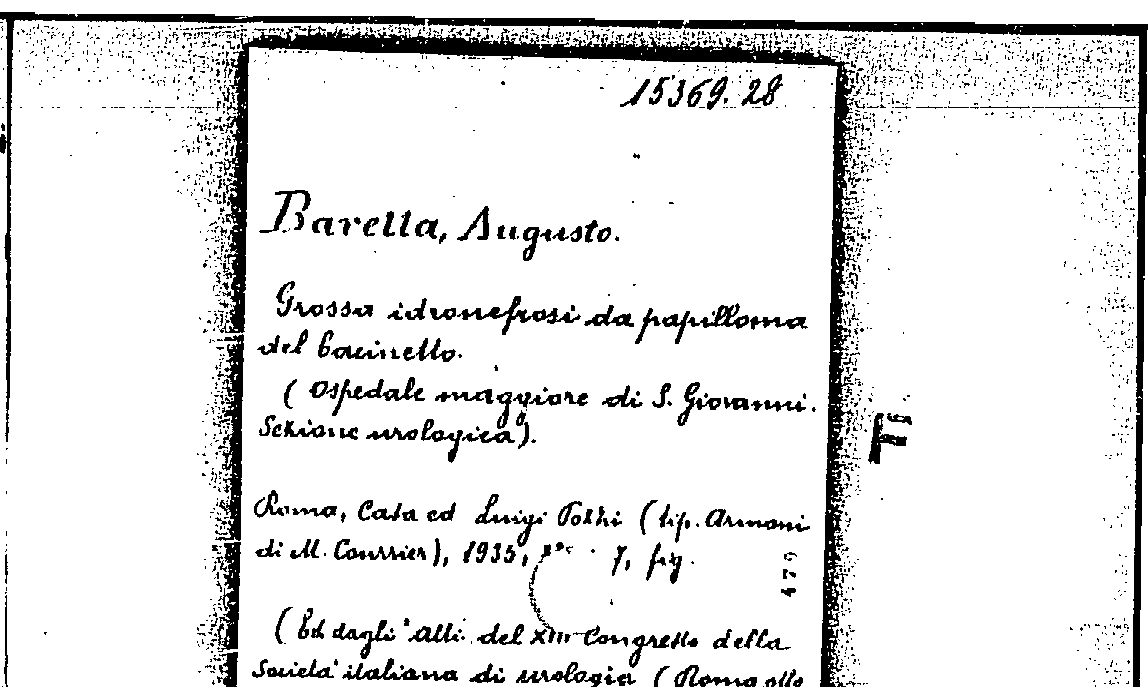 15369.28
Baretta, Augusto.
Grossa idronefrosi da papilloma
del bacinetto.
( Ospedale maggiore di S. Giovanni.
Sezione urologica).
Roma, Casa ed Luigi Pozzi ( tip. Armani
di M. Courrier), 1935, 8° . 7, fig.
479
( Est dagli "Atti del XIII Congresso della
Società italiana di urologia ( Roma otto